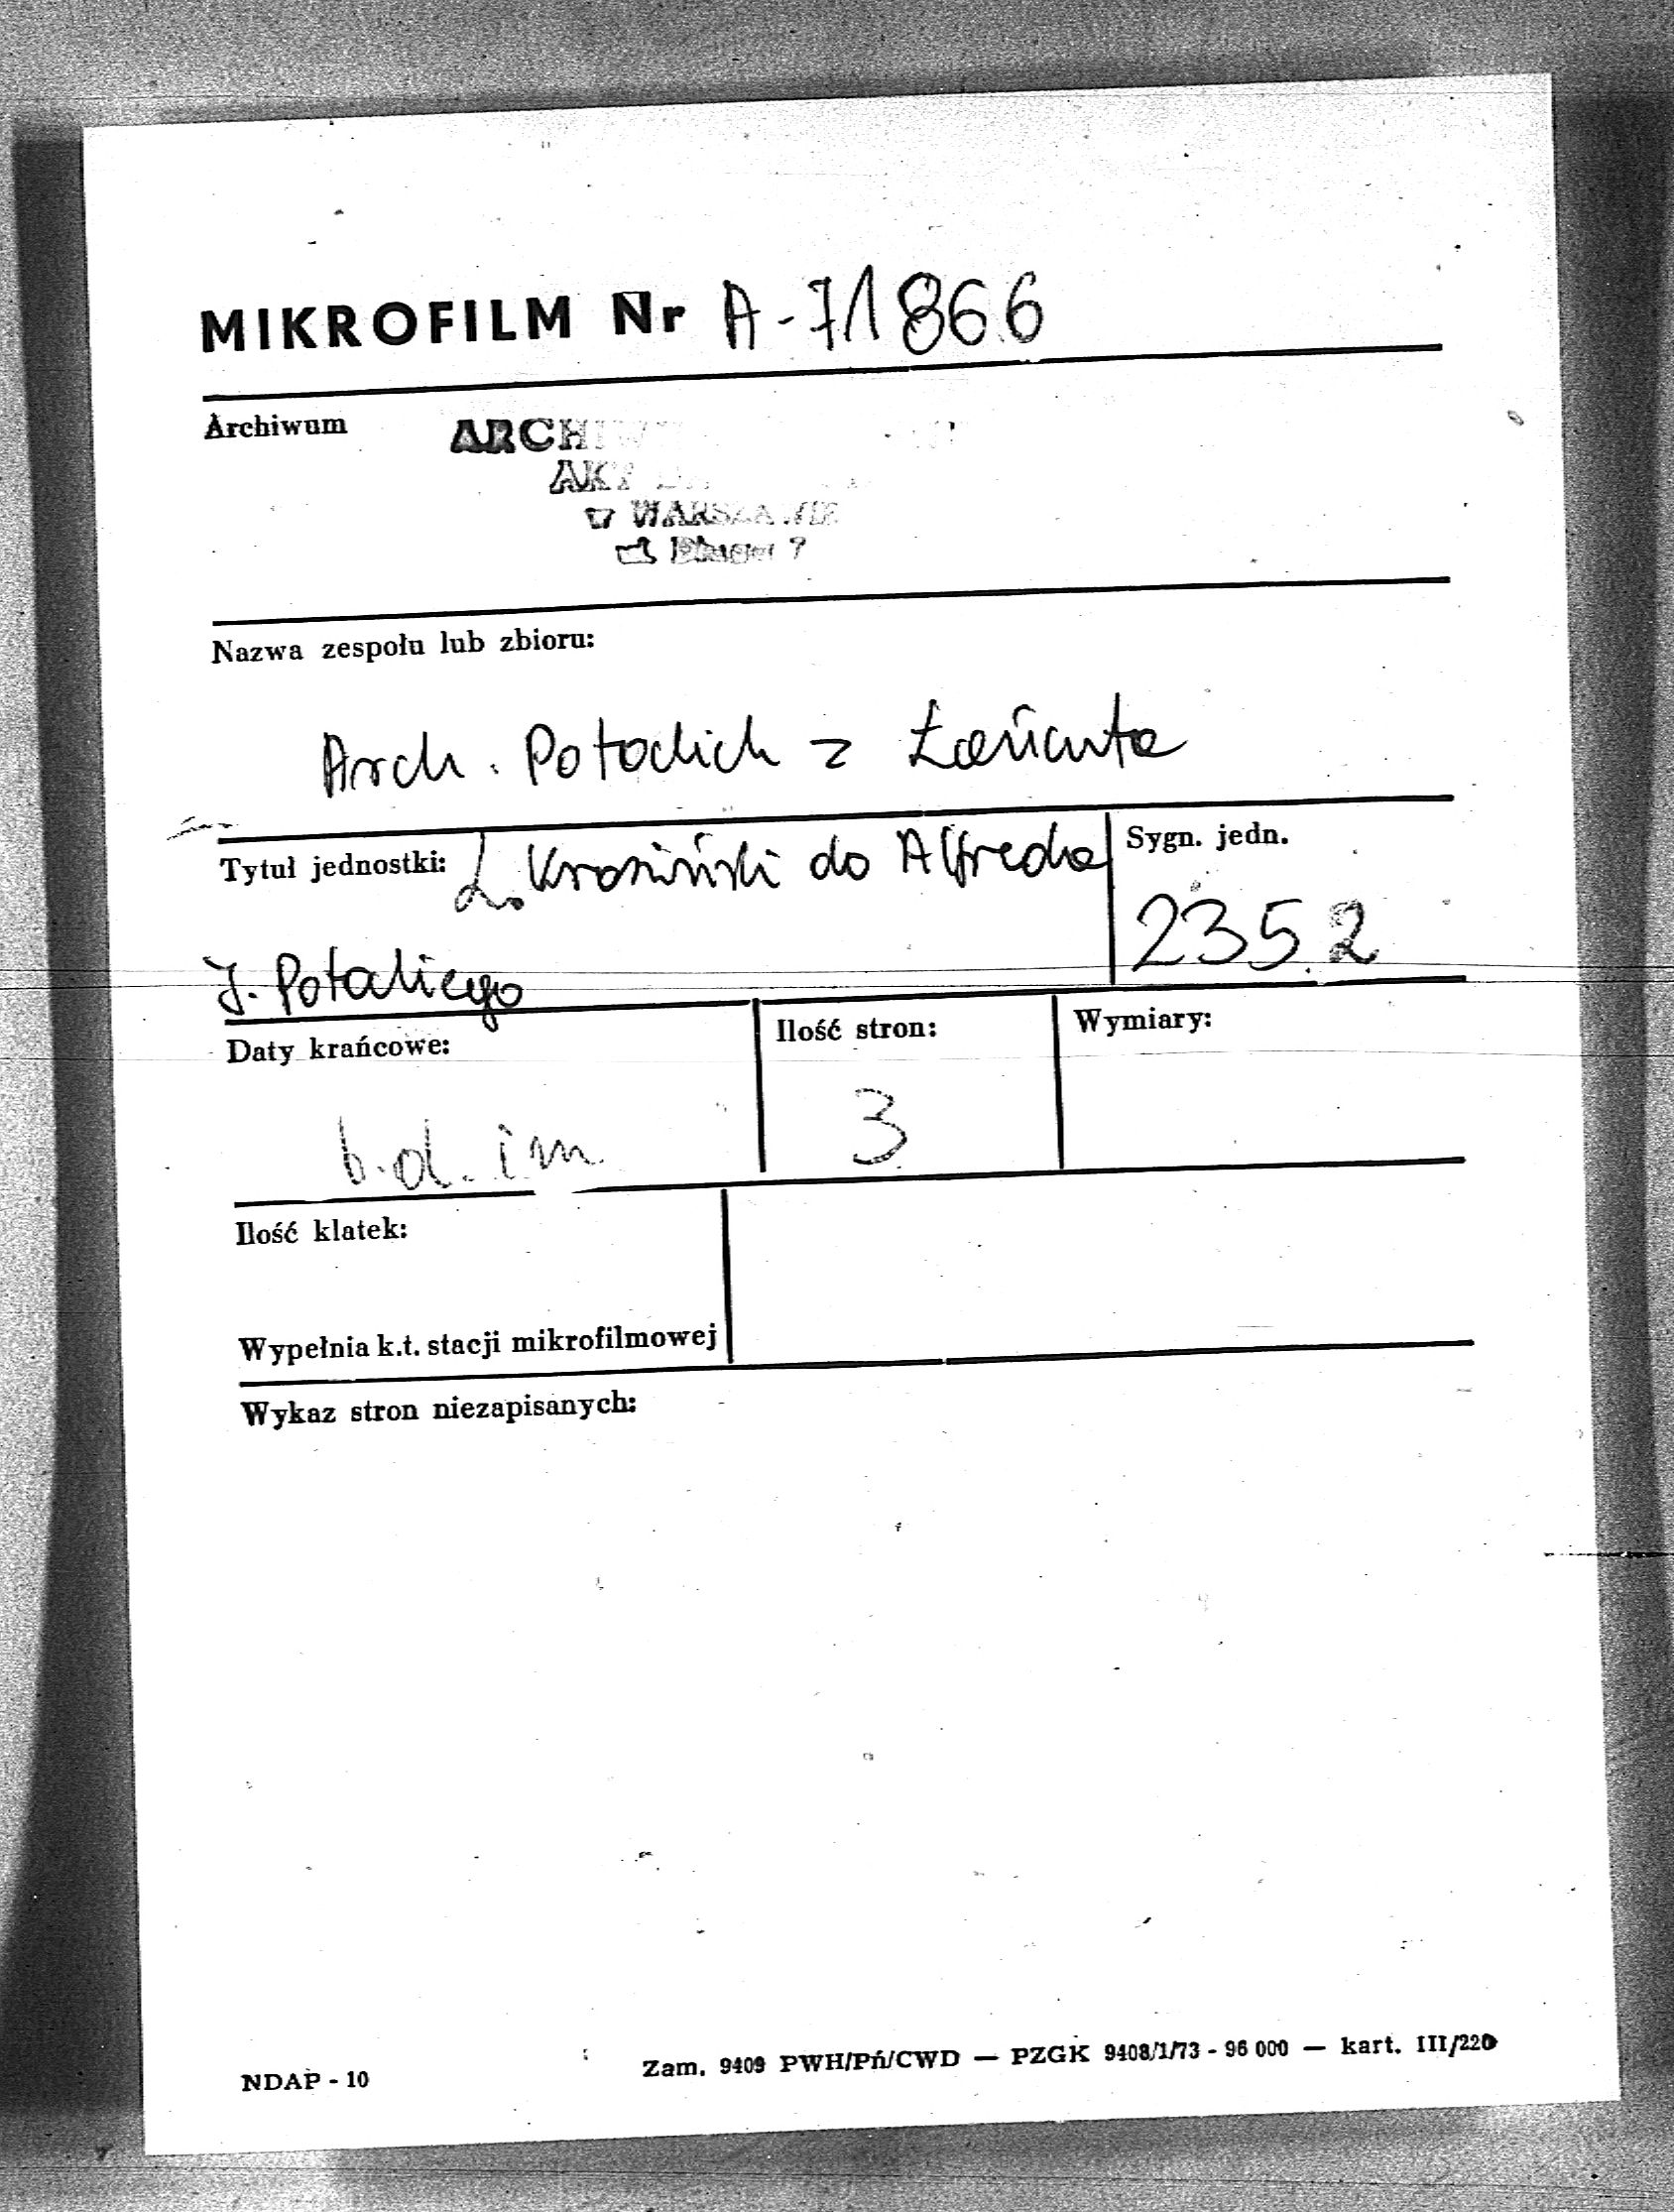 MIKROFILM Nr A-71866
Archiwum
ARCHIW
AKT
W WARSZAWIE
ul Długa 7
Nazwa zespołu lub zbioru:
Arch. Potockich z Łańcuta
Tytuł jednostki: L. Krasiński do Alfreda
Sygn. jedn.
2352
J. Potockiego
Daty krańcowe:
Ilość stron:
Wymiary:
b.d. i m.
3
Ilość klatek:
Wypełnia k.t. stacji mikrofilmowej
Wykaz stron niezapisanych:
NDAP - 10
Zam. 9409 PWH/Pń/CWD — PZGK 9408/1/73 - 96 000 — kart. III/220